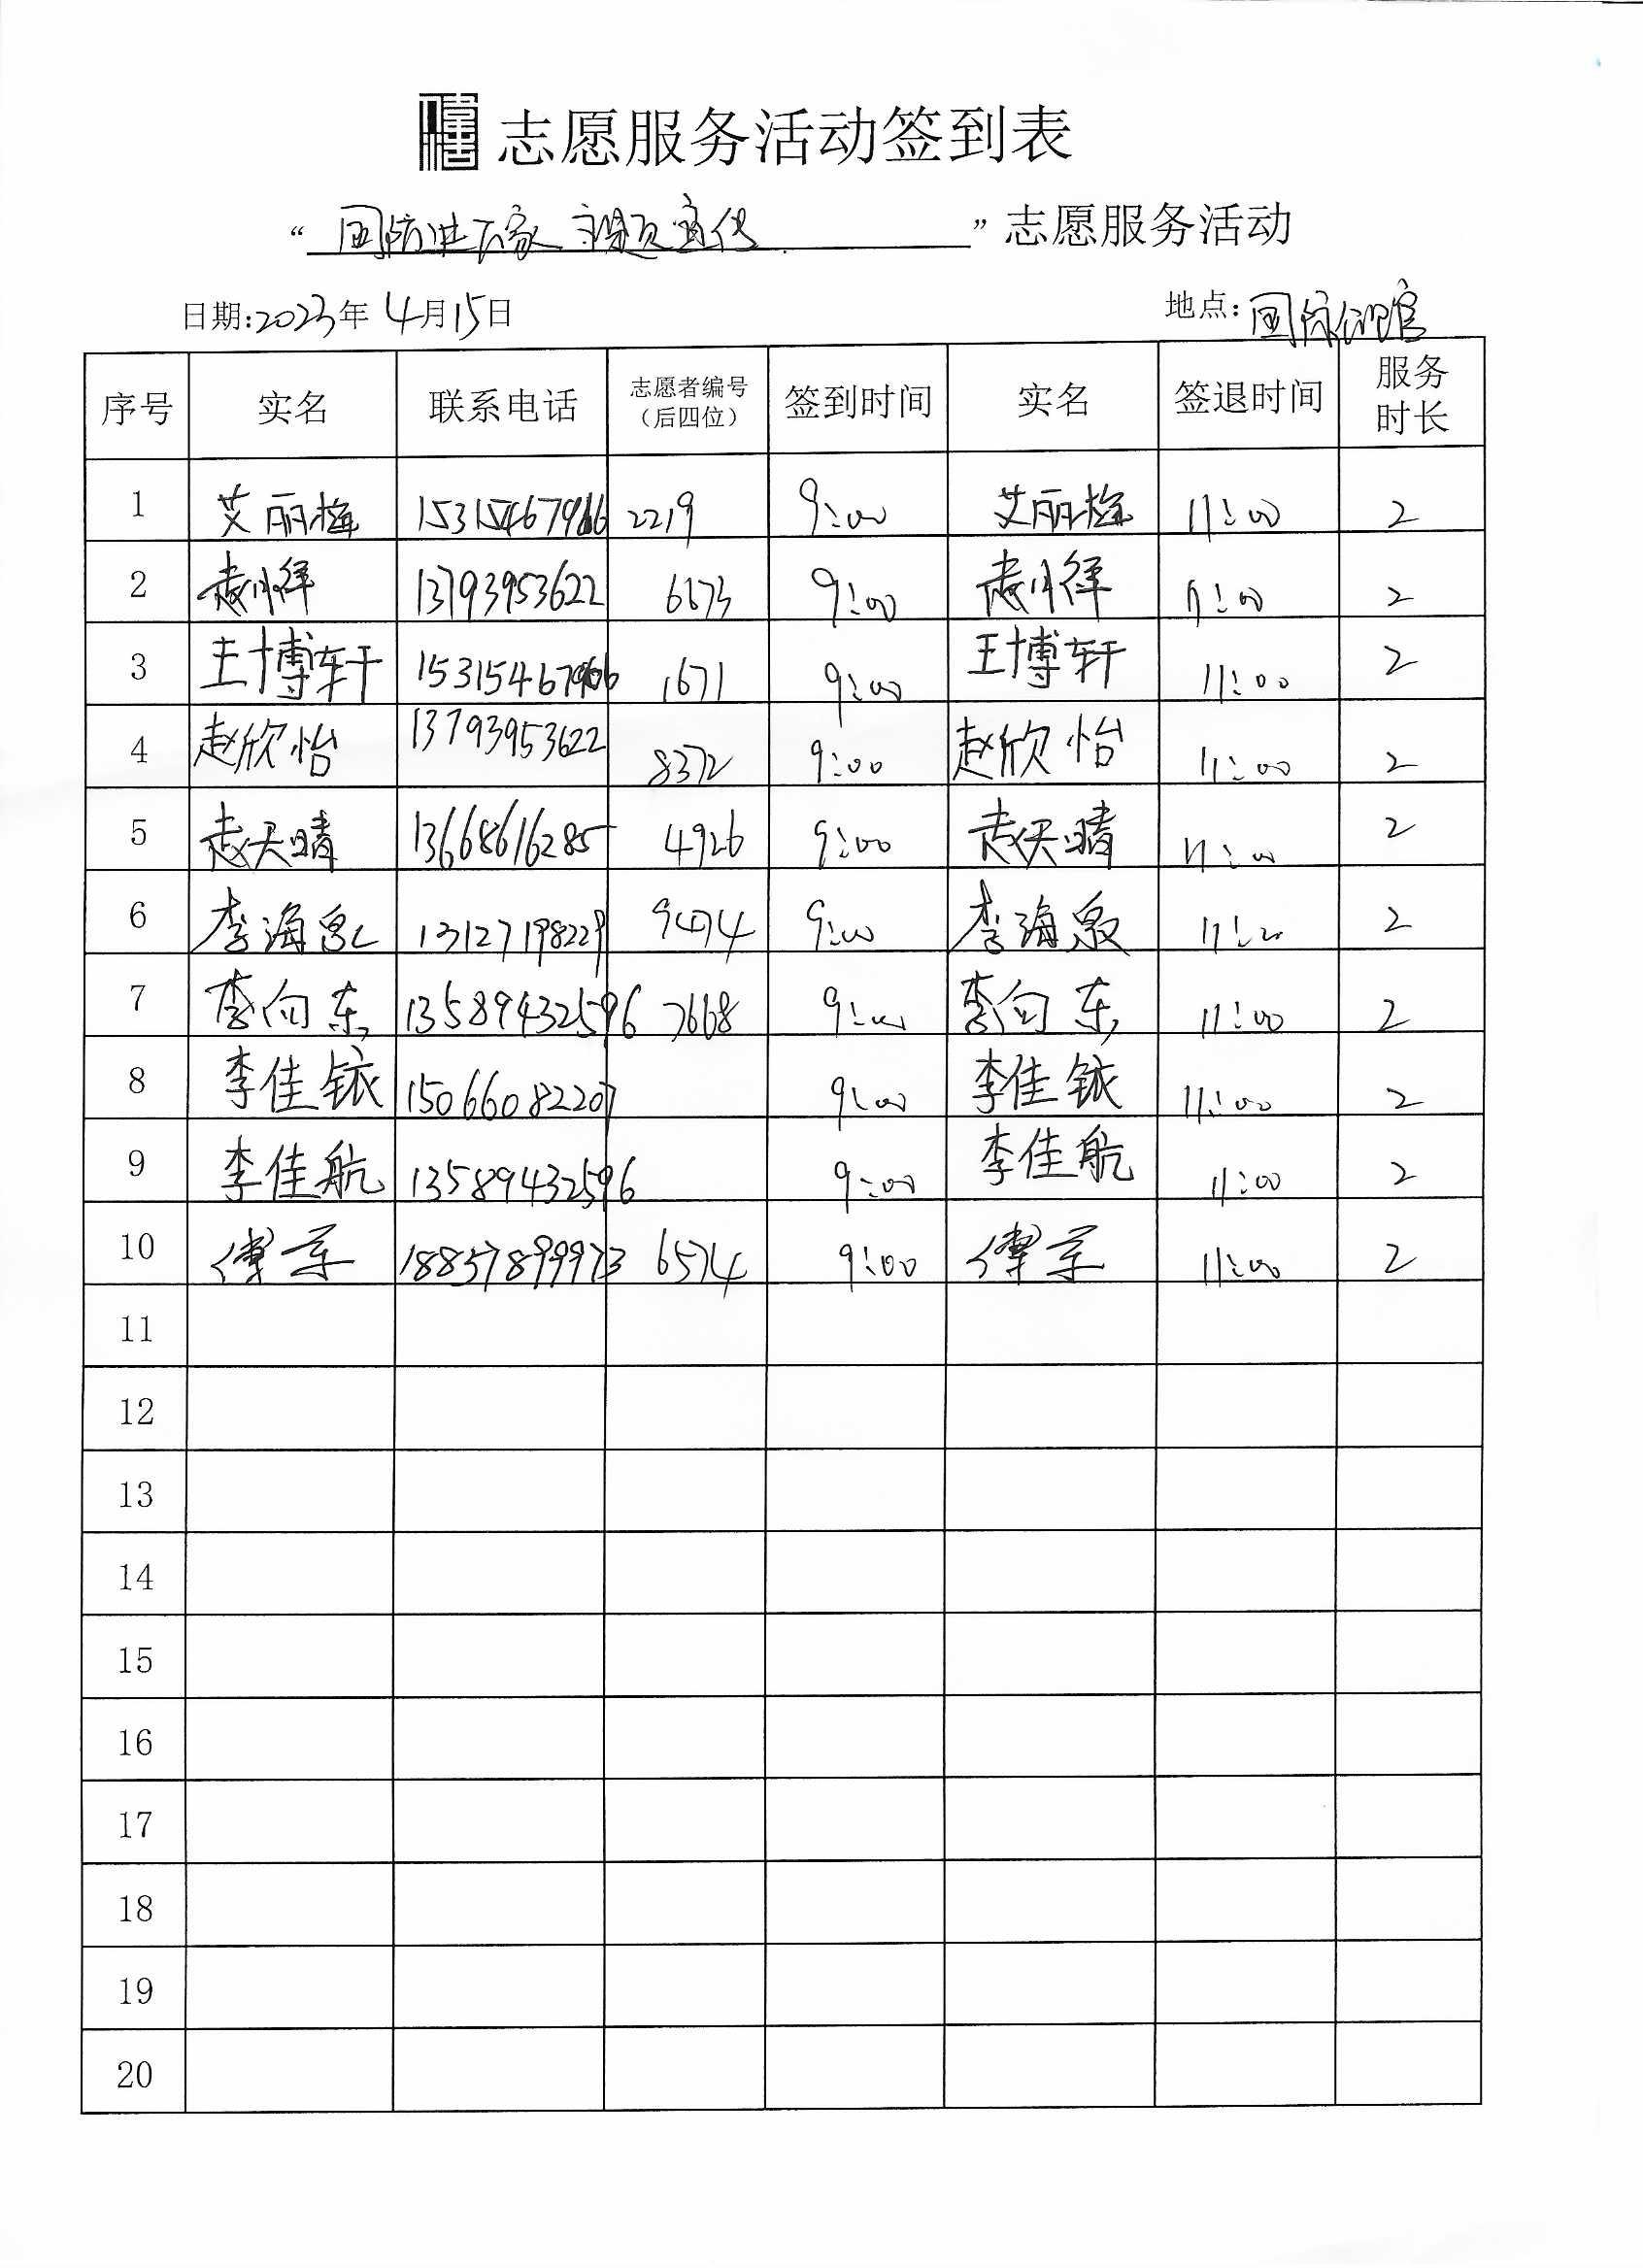 志愿服务活动签到表
“国防进万家 主题宣传”志愿服务活动
日期:2023年 4月15日 地点:国防
序号 实名 联系电话 志愿者编号（后四位） 签到时间 实名 签退时间 服务时长
1 艾丽梅 15315467966 2219 9:00 艾丽梅 11:00 2
2 赵小祥 13793953622 6573 9:00 赵小祥 11:00 2
3 王博轩 15315467966 1671 9:00 王博轩 11:00 2
4 赵欣怡 13793953622 8372 9:00 赵欣怡 11:00 2
5 赵天晴 13668616285 4926 9:00 赵天晴 11:00 2
6 李海泉 13127198229 9474 9:00 李海泉 11:00 2
7 李向东 13589432596 7668 9:00 李向东 11:00 2
8 李佳铱 15066082207 9:00 李佳铱 11:00 2
9 李佳航 13589432596 9:00 李佳航 11:00 2
10 傅军 18857899973 6574 9:00 傅军 11:00 2
11
12
13
14
15
16
17
18
19
20